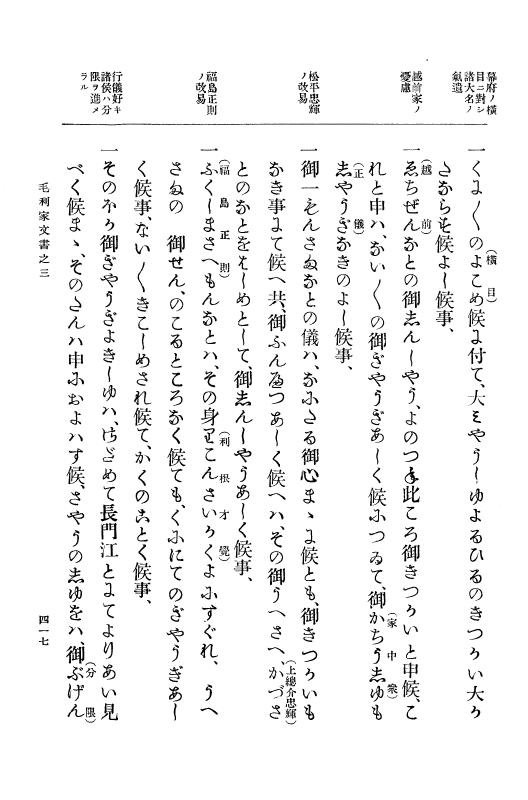 幕府ノ横
目ニ對シ
諸大名ノ
氣遣
越前家ノ
憂慮
松平忠輝
ノ改易
福島正則
ノ改易
行儀好キ
諸侯ハ分
限ヲ進メ
ラル
一くに〳〵のよこめ候に付て、大ミやうしゆよるひるのきつかい大か
(横目)
たならす候よし候事、
一ゑちぜんかとの御しんしやう、よのつ年此ころ御きつかいと申候、こ
(越前)
れと申ハ、ないない〳〵の御ぎやうぎあしく候につゐて、御かちうしゆも
(家中衆)
しやうぎなきのよし候事、
(正儀)
一御一もんさまかとの儀ハ、なにたる御心まゝに候とも、御きつかいも
なき事にて候へ共、御ふんへつあしく候へハ、その御うへさへ、かづさ
(上總介忠輝)
とのなとをはしめとして、御しんしやうあしく候事、
一ふくしまさへもんなとハ、その身りこんさいかくよにすぐれ、うへ
(福島正則)
(利根才覺)
さまの 御せん、のこるところなく候ても、くににてのぎやうぎあし
く候事、ない〳〵きこしめされ候て、かくのことく候事、
一そのほか御ぎやうぎよきしゆハ、はじめて長門江とにてよりあい見
べく候まゝ、そのたんハ申におよハす候、さやうのしゆをハ、御ぶげん
(分限)
毛利家文書之三
四一七